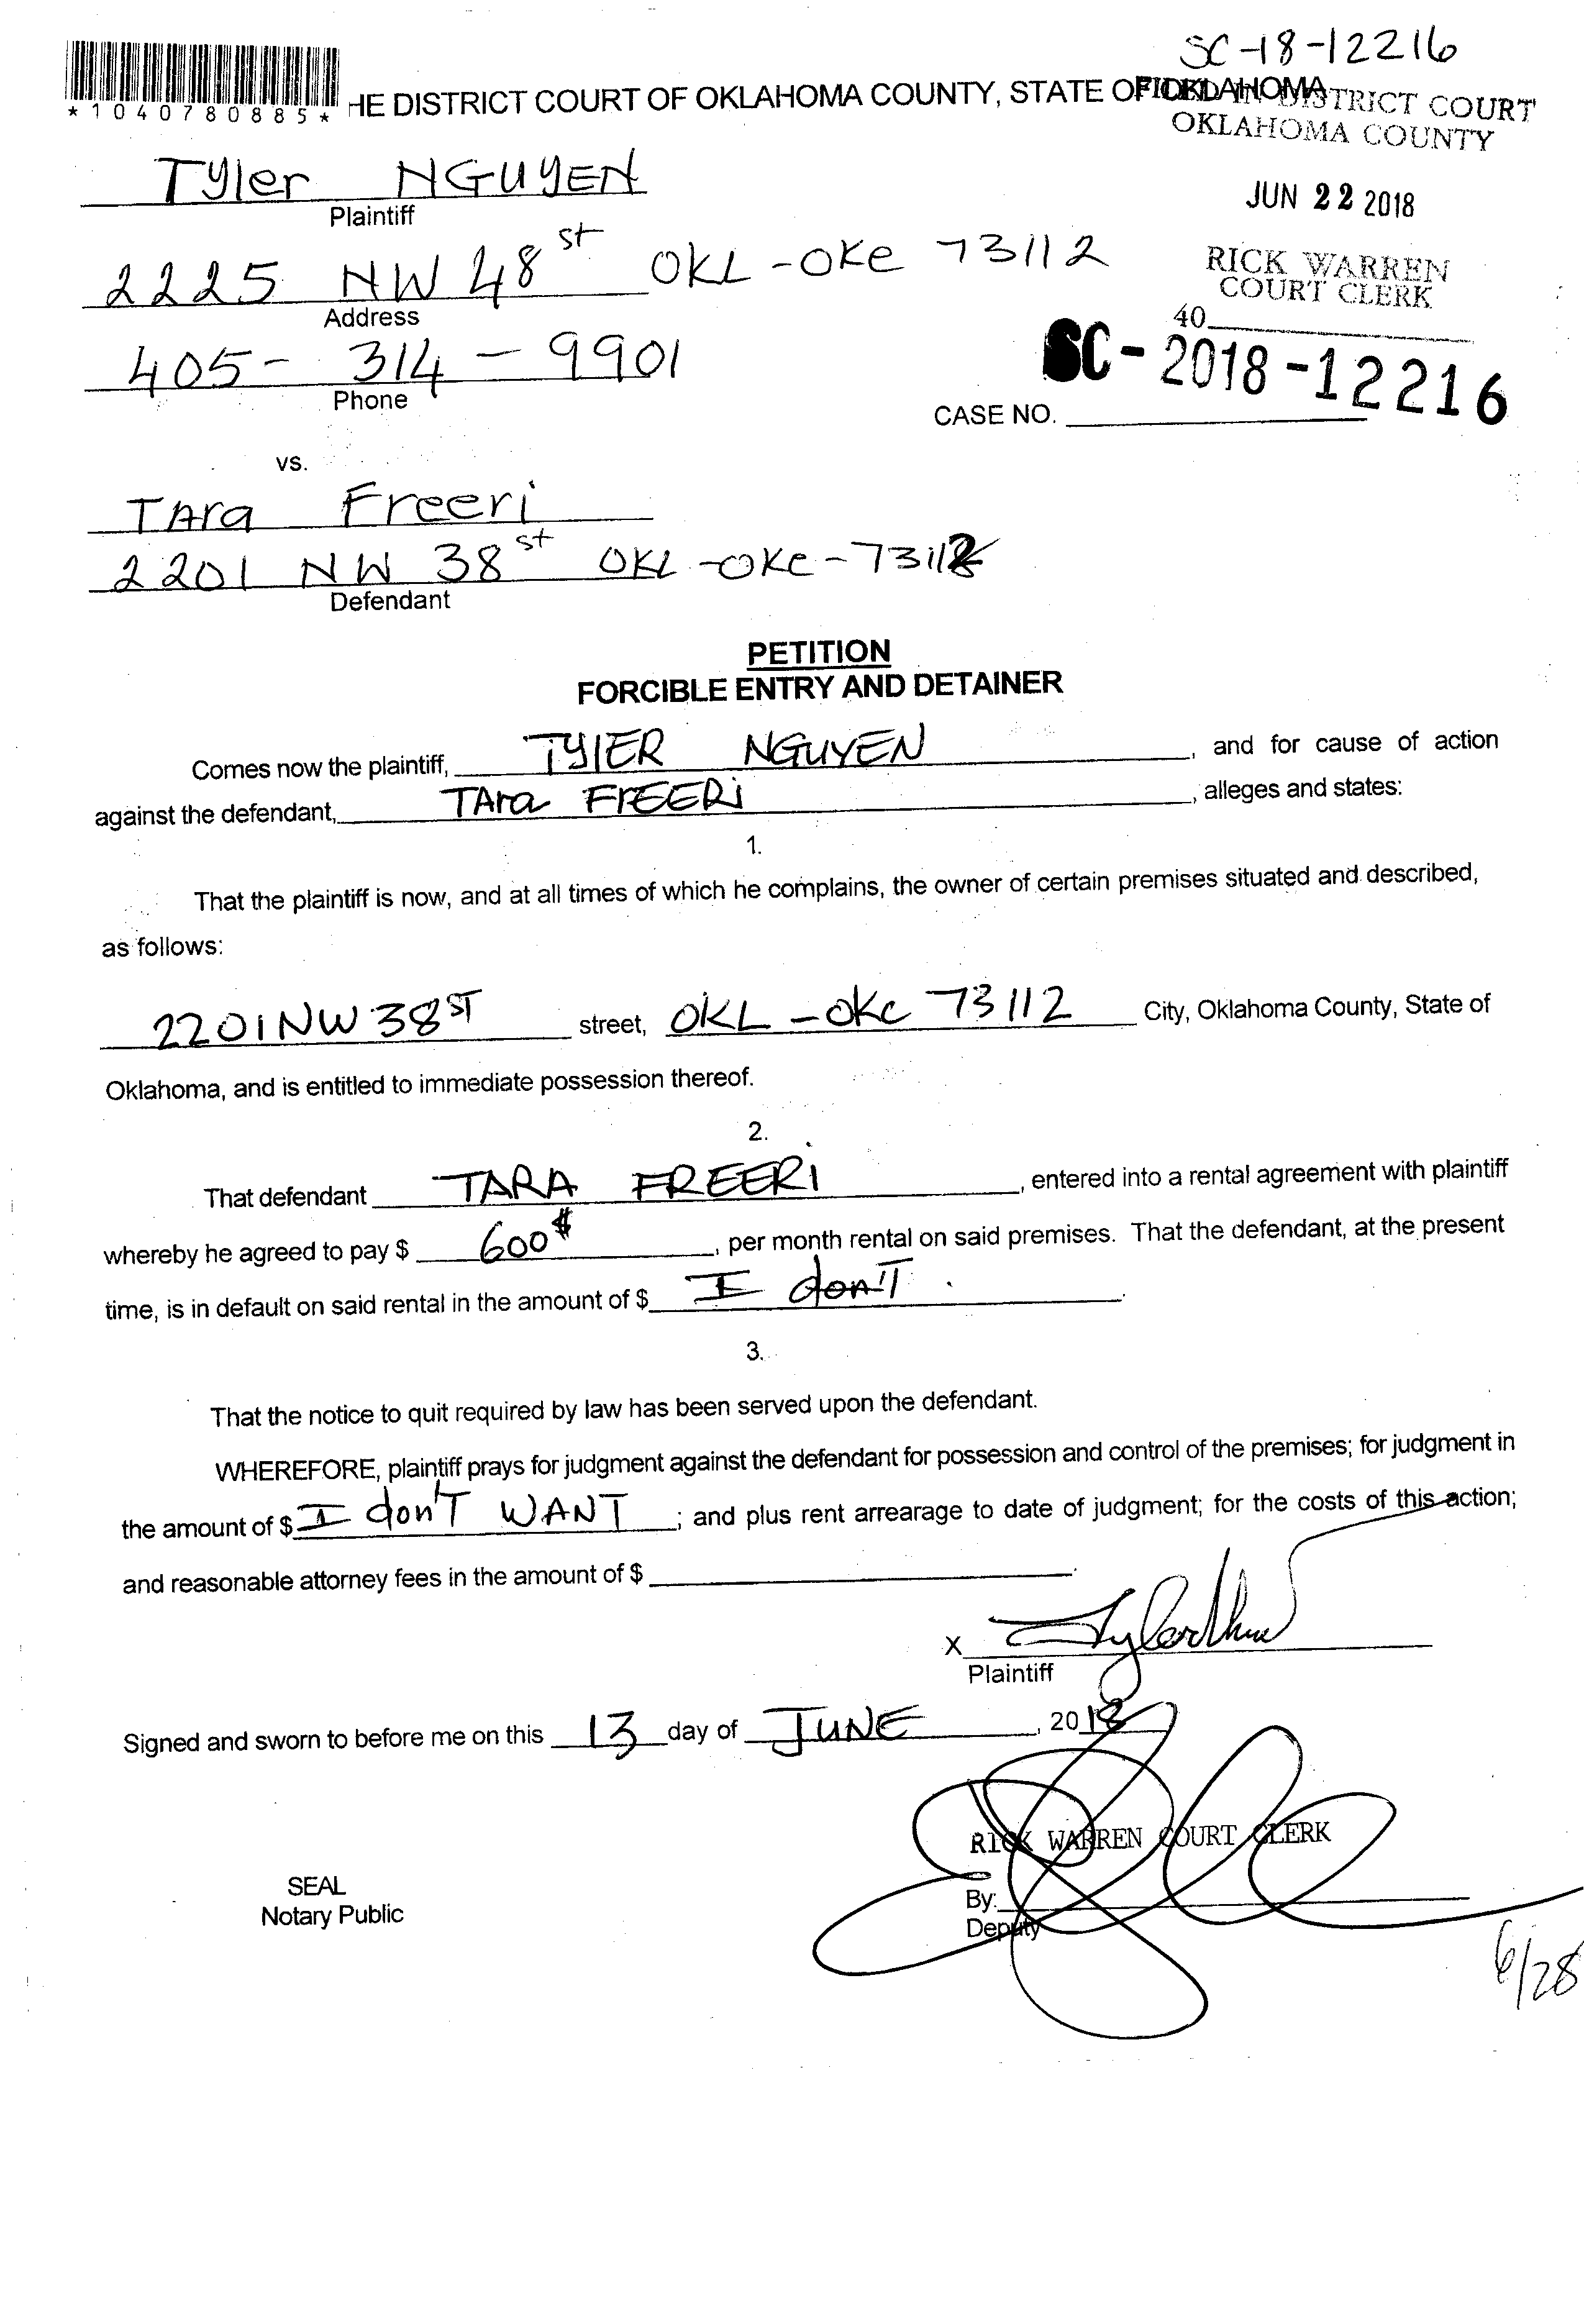 SC-18-12216
*1040780885* HE DISTRICT COURT OF OKLAHOMA COUNTY, STATE OF OKLAHOMA
DISTRICT COURT
OKLAHOMA COUNTY
Tyler NGUYEN
Plaintiff
JUN 22 2018
2225 NW 48st OKL-OKC 73112
Address
RICK WARREN
COURT CLERK
40
405-314-9901
Phone
SC-2018-12216
CASE NO.
vs.
TAra Freeri
2201 NW 38st OKL-OKC-73112
Defendant
PETITION
FORCIBLE ENTRY AND DETAINER
Comes now the plaintiff, TYlER NGUYEN, and for cause of action
against the defendant, TAra FrEERi, alleges and states:
1.
That the plaintiff is now, and at all times of which he complains, the owner of certain premises situated and described,
as follows:
2201 NW 38ST street, OKL-OKC 73112 City, Oklahoma County, State of
Oklahoma, and is entitled to immediate possession thereof.
2.
That defendant TARA FREERI, entered into a rental agreement with plaintiff
whereby he agreed to pay $ 600$, per month rental on said premises. That the defendant, at the present
time, is in default on said rental in the amount of $ I don'T.
3.
That the notice to quit required by law has been served upon the defendant.
WHEREFORE, plaintiff prays for judgment against the defendant for possession and control of the premises; for judgment in
the amount of $ I don'T WANT; and plus rent arrearage to date of judgment; for the costs of this action;
and reasonable attorney fees in the amount of $
X
Plaintiff
Signed and sworn to before me on this 13 day of JUNE, 2018
RICK WARREN COURT CLERK
SEAL
Notary Public
By:
Deputy
6/28